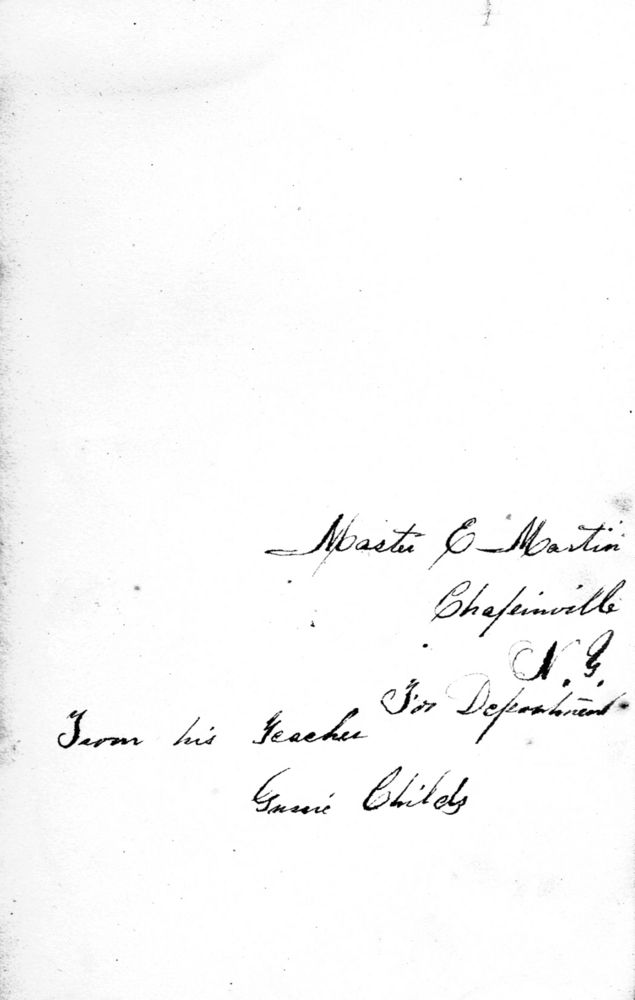 Master E Martin
Chapinville
N. Y.
For Department
From his Teacher
Gussie Childs